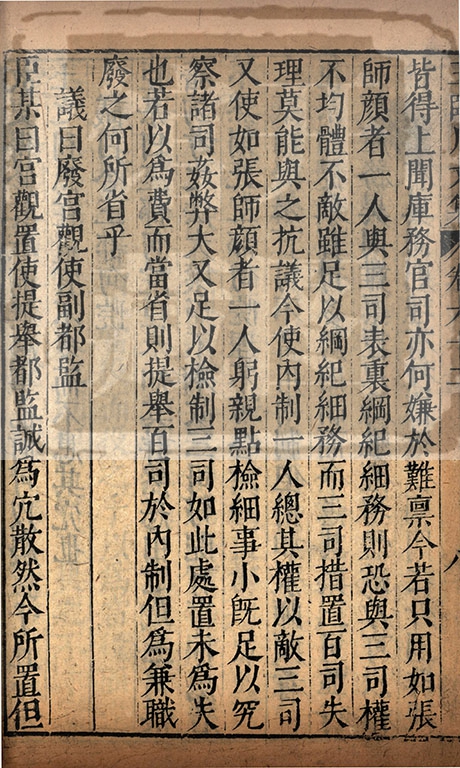 皆得上聞庫務官司亦何嫌於難禀今若只用如張
師顔者一人與三司表裏綱紀細務則恐與三司權
不均體不敵雖足以綱紀細務而三司措置百司失
理莫能與之抗議今使內制一人總其權以敵三司
又使如張師顔者一人躬親點檢細事小旣足以究
察諸司姦弊大又足以檢制三司如此處置未爲失
也若以爲費而當省則提舉百司於內制但爲兼職
廢之何所省乎
議曰廢宫觀使副都監
臣某曰宫觀置使提舉都監誠爲宂散然今所置但